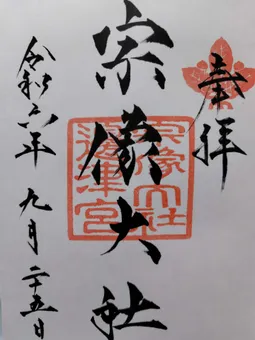 奉拝
宗像大社
令和六年九月二十五日
宗像大社
邊津宮